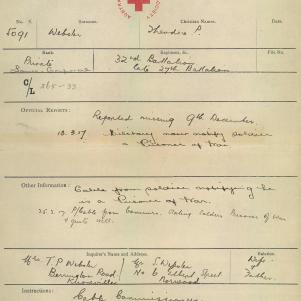 No. S Surname. Christian Names.
5091 Webster Theodore P.
Rank: Regiment, &c. File No.
Private 32nd Battalion
late 27th Battalion
C/L 365-33
OFFICIAL REPORTS: Reported missing 9th December.
13.3.17 Military now notify soldier
a Prisoner of War
Other Information: Cable from soldier notifying he
is a Prisoner of War.
25.2.17 P/Cable from Commrs. stating soldier Prisoner of War
& quite well.
Inquirer's Name and Address: Relation
Mrs T. P. Webster Mr S. Webster Wife
Berrington Road No 6 Elbert Street &
Norwood Father.
Instructions: Cable Commissioners